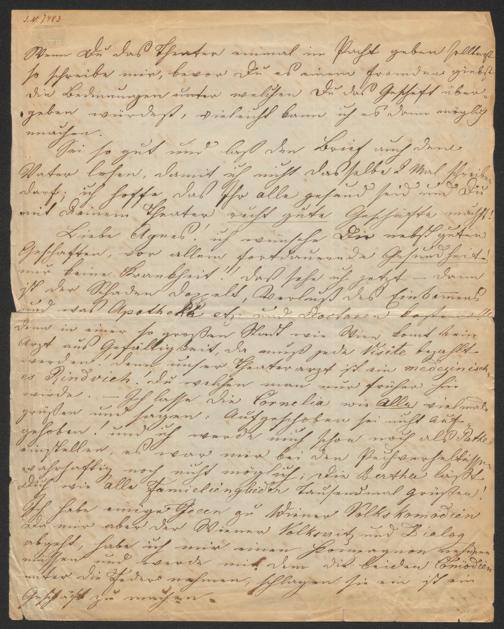 I.N. 7483
Wenn Du das Theater einmal in Pacht geben solltest
so schreibe mir, bevor Du es einem fremden giebst
die Bedingungen unter welchen Du das Geschäft über-
geben würdest, vieleicht kann ich es dann möglich
machen.
Sei so gut und laß den Brief auch dem
Vater lesen, damit ich nicht dasselbe 2 Mal schreiben
darf; ich hoffe, das Ihr alle gesund seid und Du
mit Deinem Theater recht gute Geschäfte machst!
Liebe Agnes! ich wünsche Dir nebst guten
Geschäften, vor allem fortdauernde Gesundheit!
nur keine Krankheit! das sehe ich jetzt — dann
ist der Schaden doppelt, Verlust des Einkomens
und was Apotheke etz. und Doctoren kosten
denn in einer so großen Stadt wie Wien kömt kein
Arzt aus Gefälligkeit, da muß jede Visite bezahlt
werden! denn unser Theaterarzt ist ein medizinisch
es Rindvieh, zu welchem man nur früher hin
würde. — Ich lasse die Cornelia wie Alle vielmals
grüßen und sagen: Aufgeschoben sei nicht auf-
gehoben! und ich werde mich schon noch als Pathe
einstellen, es war mir bei den Verhältnissen
wahrhaftig noch nicht möglich; die Bertha läßt
Dich wie alle Familienglieder tausendmal grüssen!
Ich habe einige Ideen zu Wiener Volkskomödien
da mir aber der Wiener Volkswitz und Dialog
abgeht, habe ich mir einen Compagnon nehmen
müssen und werde mit dem die beiden Comödien
unter die Feder nehmen, schlagen sie ein ist ein
Geschäft zu machen.